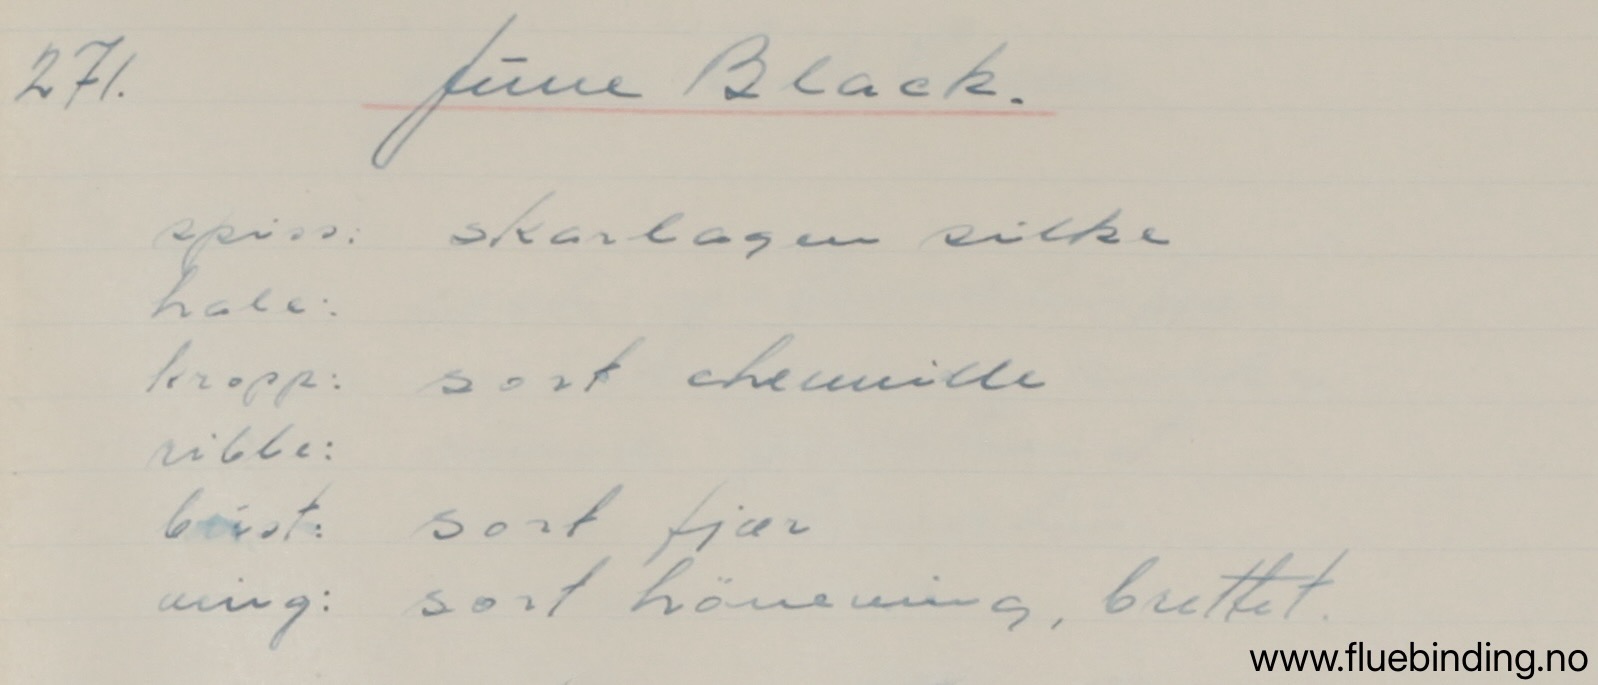 271. Jūne Black.
spiss: skarlagen silke
hale:
kropp: sort chennille
ribbe:
bust: sort fjær
ving: sort höneving, brettet.
www.fluebinding.no